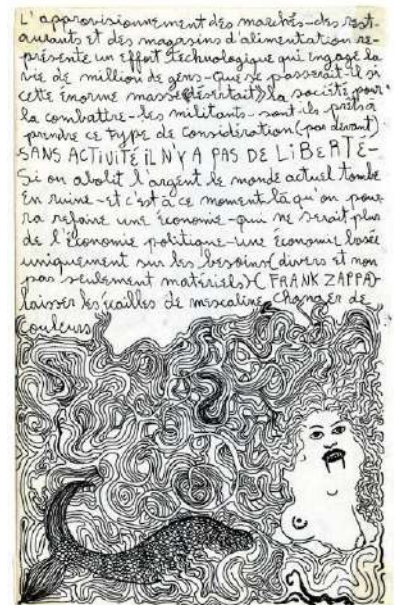 L'approvisionnement des marchés-des rest-
aurants et des magasins d'alimentation re-
présente un effort technologique qui engage la
vie de million de gens-Que se passerait-il si
cette énorme masse «désertait» la société pour
la combattre-les militants-sont-ils prêts à
prendre ce type de considération (par devant)
SANS ACTIVITÉ iL N'Y A PAS DE LiBERTÉ-
Si on abolit l'argent le monde actuel tombe
en ruine-et c'est à ce moment là qu'on pour-
ra refaire une économie-qui ne serait plus
de l'économie politique-une économie basée
uniquement sur les besoins (divers et non
pas seulement matériels) (FRANK ZAPPA)-
laisser les écailles de mescaline changer de
couleurs